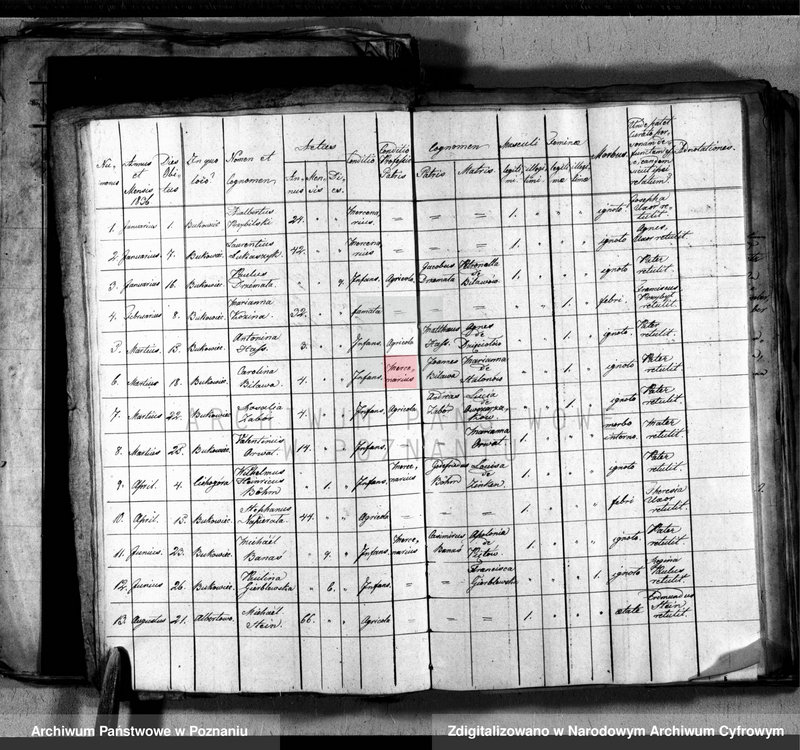 Nu-
merus
Annus
et
Mensis
1836
Dies
Obi-
tus
In quo
loco?
Nomen et
Cognomen
Aetas
An-
nus
Men-
sis
Di-
es.
Conditio
Conditio
Professio
Patris
Cognomen
Patris
Matris
Masculi
legiti
mi
illegi
timi
Feminae
legiti
mae
illegi
timae
Morbus
Adnotationes.
1. Januarius 1. Bukowiec Adalbertus Przybilski 24. " " Mercenarius = = = 1. " " " ignoto Josepha Uxor retulit
2. Januarius 7. Bukowiec Laurentius Lukaszyk 42. " " Mercenarius = = = 1. " " " ignoto Agnes Uxor retulit
3. Januarius 16. Bukowiec Paulus Drzémata. " " 7. Infans. Agricola Jacobus Drzémata Petronella de Bilawów 1. " " " ignoto Pater retulit
4. Februarius 8. Bukowiec Marianna Kozina. 32. " " famula = = = " " 1. " febri. Franciscus retulit.
5. Martius 15. Bukowiec Antonina Hafs. 3. " " Infans Agricola Matthaeus Hafs. Agnes de " " 1. " ignoto Pater retulit.
6. Martius 18. Bukowiec Carolina Bilawa. 4. " " Infans. Mercenarius Joannes Bilawa Marianna de " " 1. " ignoto Pater retulit.
7. Martius 22. Bukowiec Rosalia Zabór 4. " " Infans. Agricola Andreas Zabór Lucia de " " 1. " ignoto Pater retulit.
8. Martius 25. Bukowiec Valentinus Orwat. 14. " " Infans. = = Marianna Orwat 1. morbo interno. Mater retulit.
9. April. 4. Wilhelmus Heinricus Böhm " 1. " Infans. Mercenarius Böhm Louisa de Zinken. 1. " " " ignoto Pater retulit.
10. April. 15. Bukowiec. Stephanus Napierala 44. " " Agricola = = = 1. " " " febri Theresia Uxor retulit.
11. Junius. 23. Bukowiec. Michaël Banas " 9. " Infans. Mercenarius Casimirus Banas Apolonia de 1. " " " ignoto. Pater retulit.
12. Junius 26. Bukowiec. Paulina Gierblewska " 6. " Infans. = = Francisca Gierblewska " " " 1. ignoto Regina Paulus retulit
13. Augustus 21. Albertowo. Michaël Stein. 66. " " Agricola = = = 1. " " " aetate Edmundus Stein retulit.
ARCHIWUM PAŃSTWOWE
W POZNANIU
Archiwum Państwowe w Poznaniu
Zdigitalizowano w Narodowym Archiwum Cyfrowym